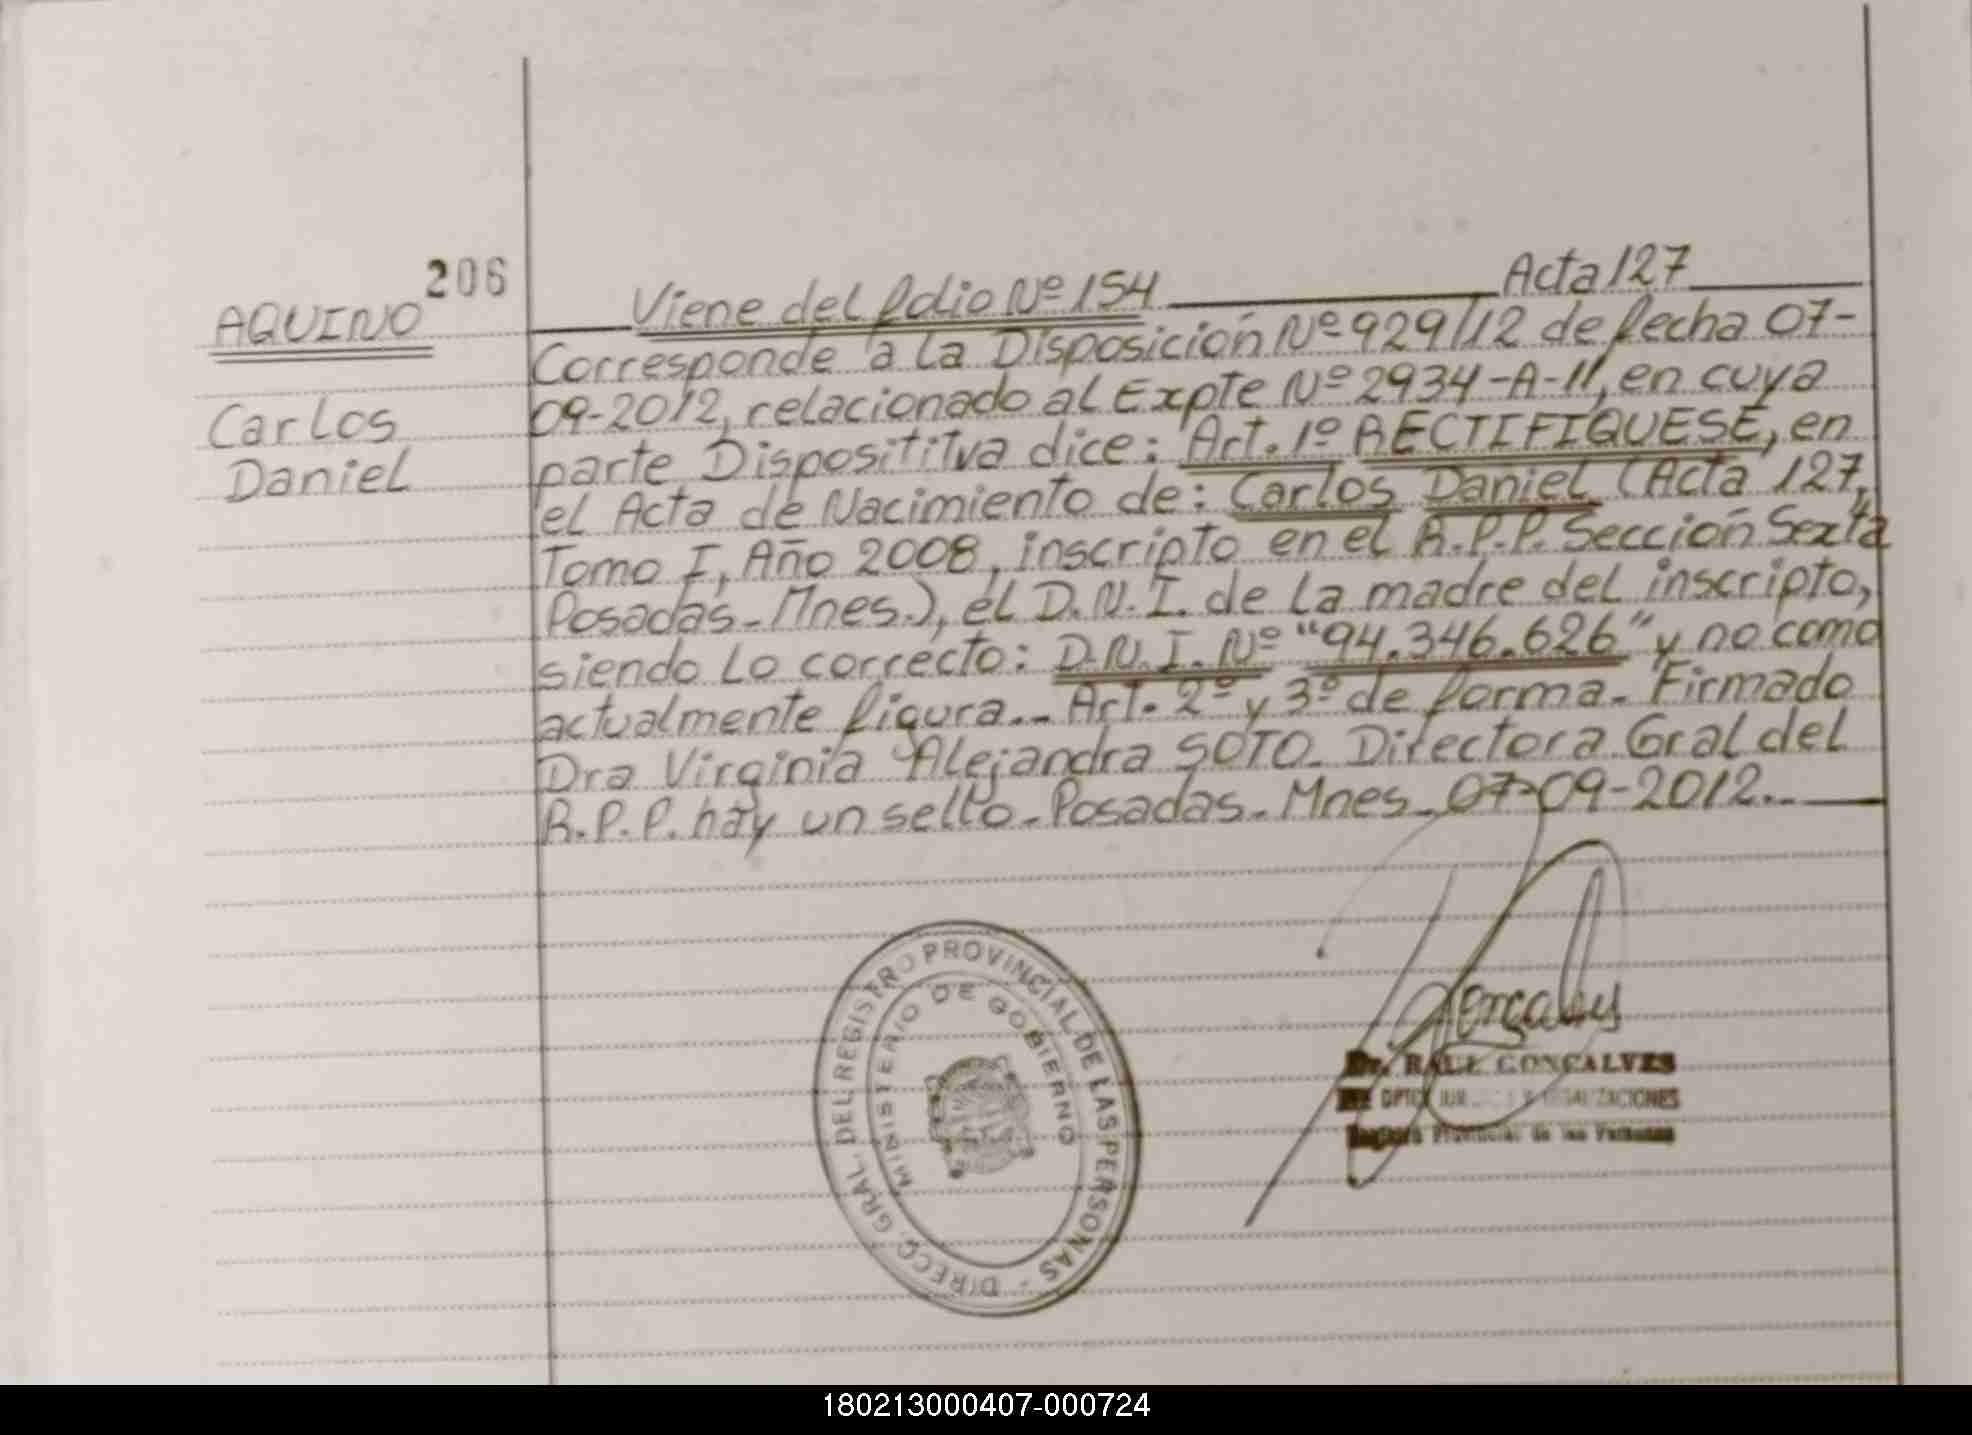 206
AQUINO
Carlos
Daniel
Viene del folio Nº 154 Acta 127
Corresponde a la Disposición Nº 929/12 de fecha 07-
09-2012, relacionado al Expte Nº 2934-A-11, en cuya
parte Disposititva dice: Art. 1º RECTIFIQUESE, en
el Acta de Nacimiento de: Carlos Daniel (Acta 127,
Tomo I, Año 2008, inscripto en el R.P.P. Sección Sexta
Posadas-Mnes.), el D.N.I. de la madre del inscripto,
siendo lo correcto: D.N.I. Nº "94.346.626" y no como
actualmente figura.- Art. 2º y 3º de forma. Firmado
Dra Virginia Alejandra SOTO. Directora Gral del
R.P.P. hay un sello. Posadas. Mnes. 07-09-2012.-
DIRECC. GRAL. DEL REGISTRO PROVINCIAL DE LAS PERSONAS -
MINISTERIO DE GOBIERNO
Gonçalves
Dr. RAUL GONÇALVES
DPTO Y LEGALIZACIONES
Registro Provincial de las Personas
180213000407-000724